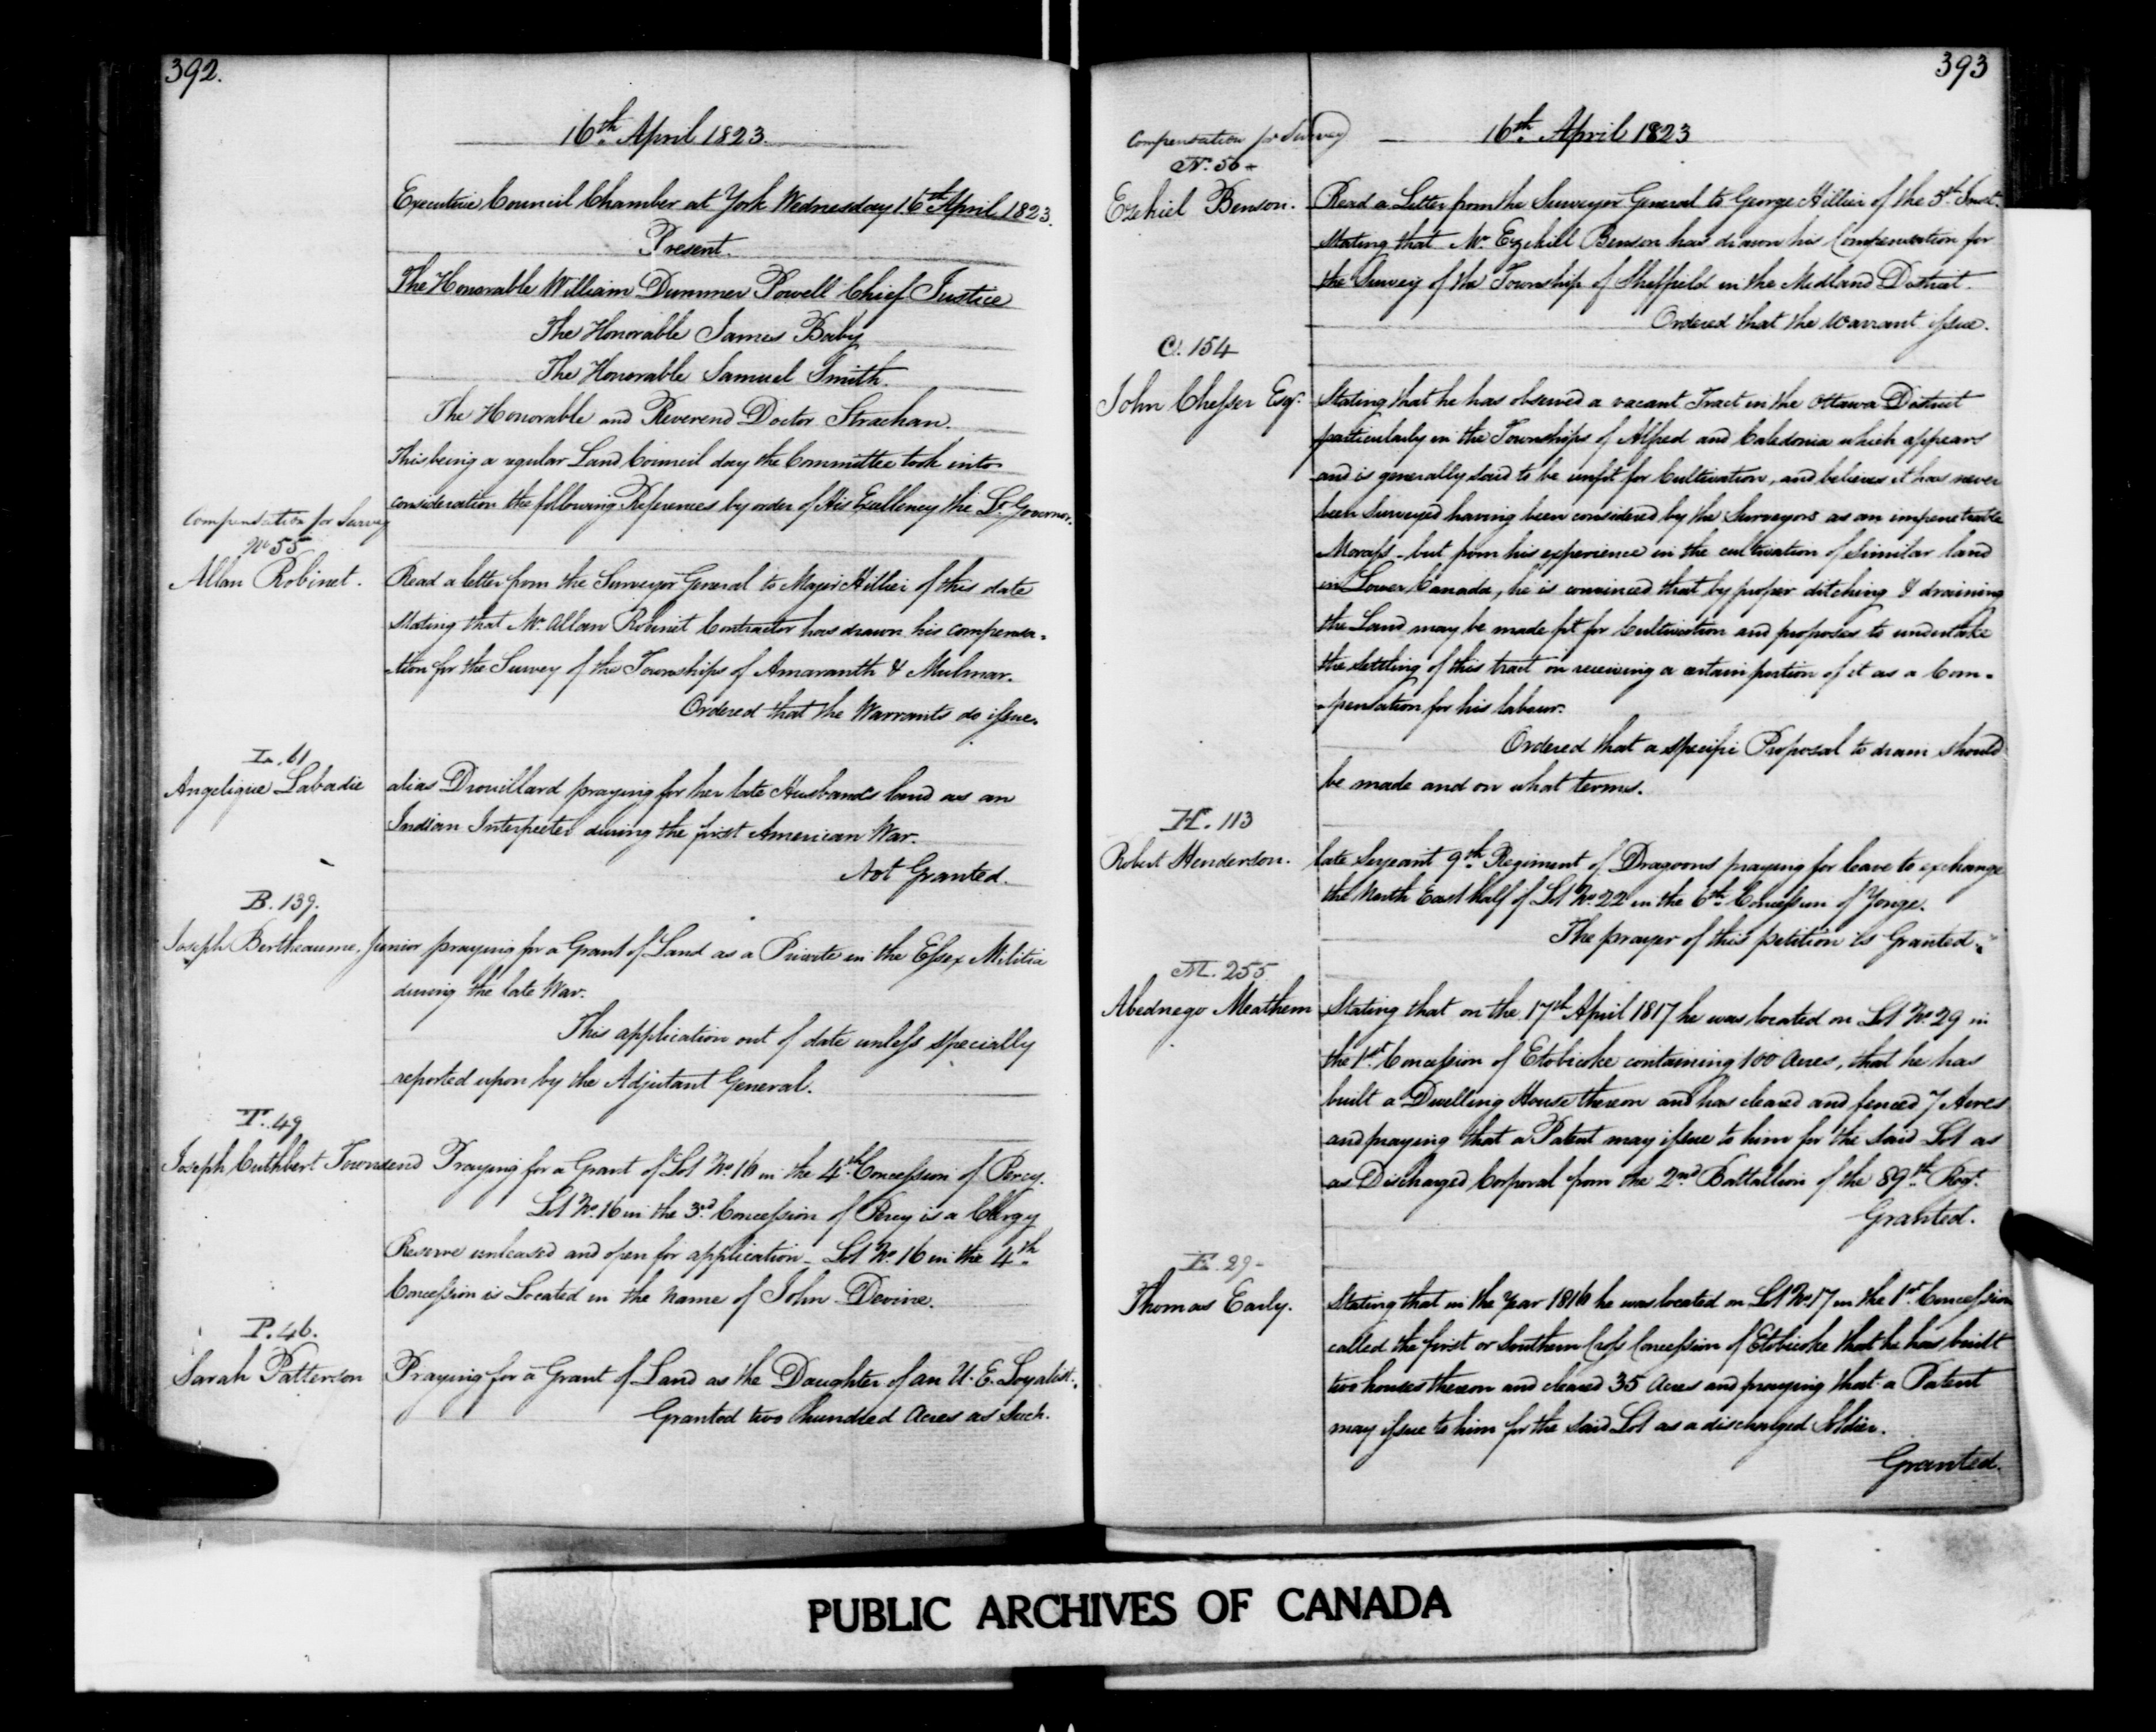 392.
16th April 1823.
Executive Council Chamber at York Wednesday 16th April 1823.
Present.
The Honorable William Dummer Powell Chief Justice
The Honorable James Baby
The Honorable Samuel Smith.
The Honorable and Reverend Doctor Strachan.
This being a regular Land Council day the Committee took into
consideration the following References by order of His Excellency the Lt. Governor.
Compensation for Survey
No 55
Allan Robinet.
Read a letter from the Surveyor General to Major Hillier of this date
stating that Mr. Allan Robinet Contractor has drawn his compensa-
-tion for the Survey of the Townships of Amaranth & Mulmar.
Ordered that the Warrants do issue.
L. 61
Angelique Labadie
alias Drouillard praying for her late Husbands land as an
Indian Interpreter during the first American War.
Not Granted.
B. 139.
Joseph Bertheaume, Junior praying for a Grant of Land as a Private in the Essex Militia
during the late War.
This application out of date unless specially
reported upon by the Adjutant General.
T. 49
Joseph Cuthbert Townsend Praying for a Grant of Lot No. 16 in the 4th Concession of Percy.
Lot No. 16 in the 3rd Concession of Percy is a Clergy
Reserve unleased and open for application - Lot No. 16 in the 4th
Concession is Located in the name of John Devine.
P. 46.
Sarah Patterson
Praying for a Grant of Land as the Daughter of an U.E. Loyalist.
Granted two hundred Acres as Such.
393
16th April 1823
Compensation for Survey
No. 56
Ezekiel Benson.
Read a Letter from the Surveyor General to George Hillier of the 5th Inst.
stating that Mr. Ezekill Benson has drawn his Compensation for
the Survey of the Township of Sheffield in the Midland District.
Ordered that the Warrant issue.
C. 154
John Chesser Esqr.
Stating that he has observed a vacant Tract in the Ottawa District
particularly in the Townships of Alfred and Caledonia which appears
and is generally said to be unfit for Cultivation, and believes it has never
been Surveyed having been considered by the Surveyors as an impenetrable
Morass - but from his experience in the cultivation of Similar land
in Lower Canada, he is convinced that by proper ditching & draining
the Land may be made fit for Cultivation and proposes to undertake
the settling of this tract on receiving a certain portion of it as a Com-
-pensation for his labour.
Ordered that a specific Proposal to drain should
be made and on what terms.
H. 113
Robert Henderson.
late Serjeant 9th Regiment of Dragoons praying for leave to exchange
the North East half of Lot No. 22 in the 6th Concession of Yonge.
The prayer of this petition is Granted.
M. 255
Abednego Meathem
Stating that on the 17th April 1817 he was located on Lot No. 29 in
the 1st Concession of Etobicoke containing 100 Acres, that he has
built a Dwelling House thereon and has cleared and fenced 7 Acres
and praying that a Patent may issue to him for the said Lot as
as Discharged Corporal from the 2nd Battallion of the 89th Regt.
Granted.
E. 29
Thomas Early.
Stating that in the Year 1816 he was located on Lot No 17 in the 1st Concession
called the first or Southern Cross Concession of Etobicoke that he has built
two houses thereon and cleared 35 Acres and praying that a Patent
may issue to him for the said Lot as a discharged Soldier.
Granted.
PUBLIC ARCHIVES OF CANADA